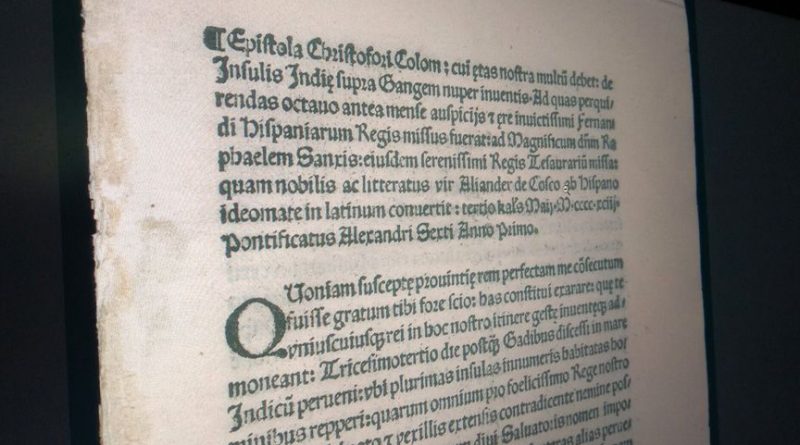 ¶ Epistola Christofori Colom: cui ętas nostra multũ debet: de
Insulis Indię supra Gangem nuper inuentis. Ad quas perqui-
rendas octauo antea mense auspicijs ⁊ ęre inuictissimi Fernan
di Hispaniarum Regis missus fuerat: ad Magnificum dñm Ra
phaelem Sanxis: eiusdem serenissimi Regis Tesaurariũ missa:
quam nobilis ac litteratus vir Aliander de Cosco ab Hispano
ideomate in latinum conuertit: tertio kaľs Maij. M.cccc.xciij.
Pontificatus Alexandri Sexti Anno Primo.
QUoniam susceptę prouintię rem perfectam me cõsecutum
fuisse gratum tibi fore scio: has constitui exarare: quę te
vniuscuiusq rei in hoc nostro itinere gestę inuentęq ad-
moneant: Tricesimotertio die postq̃ Gadibus discessi in mare
Indicũ perueni: vbi plurimas insulas innumeris habitatas ho-
minibus repperi: quarum omnium pro foelicissimo Rege nostro
vexillis extensis contradicente nemine pos-
diui Saluatoris nomen impo-
alias perue